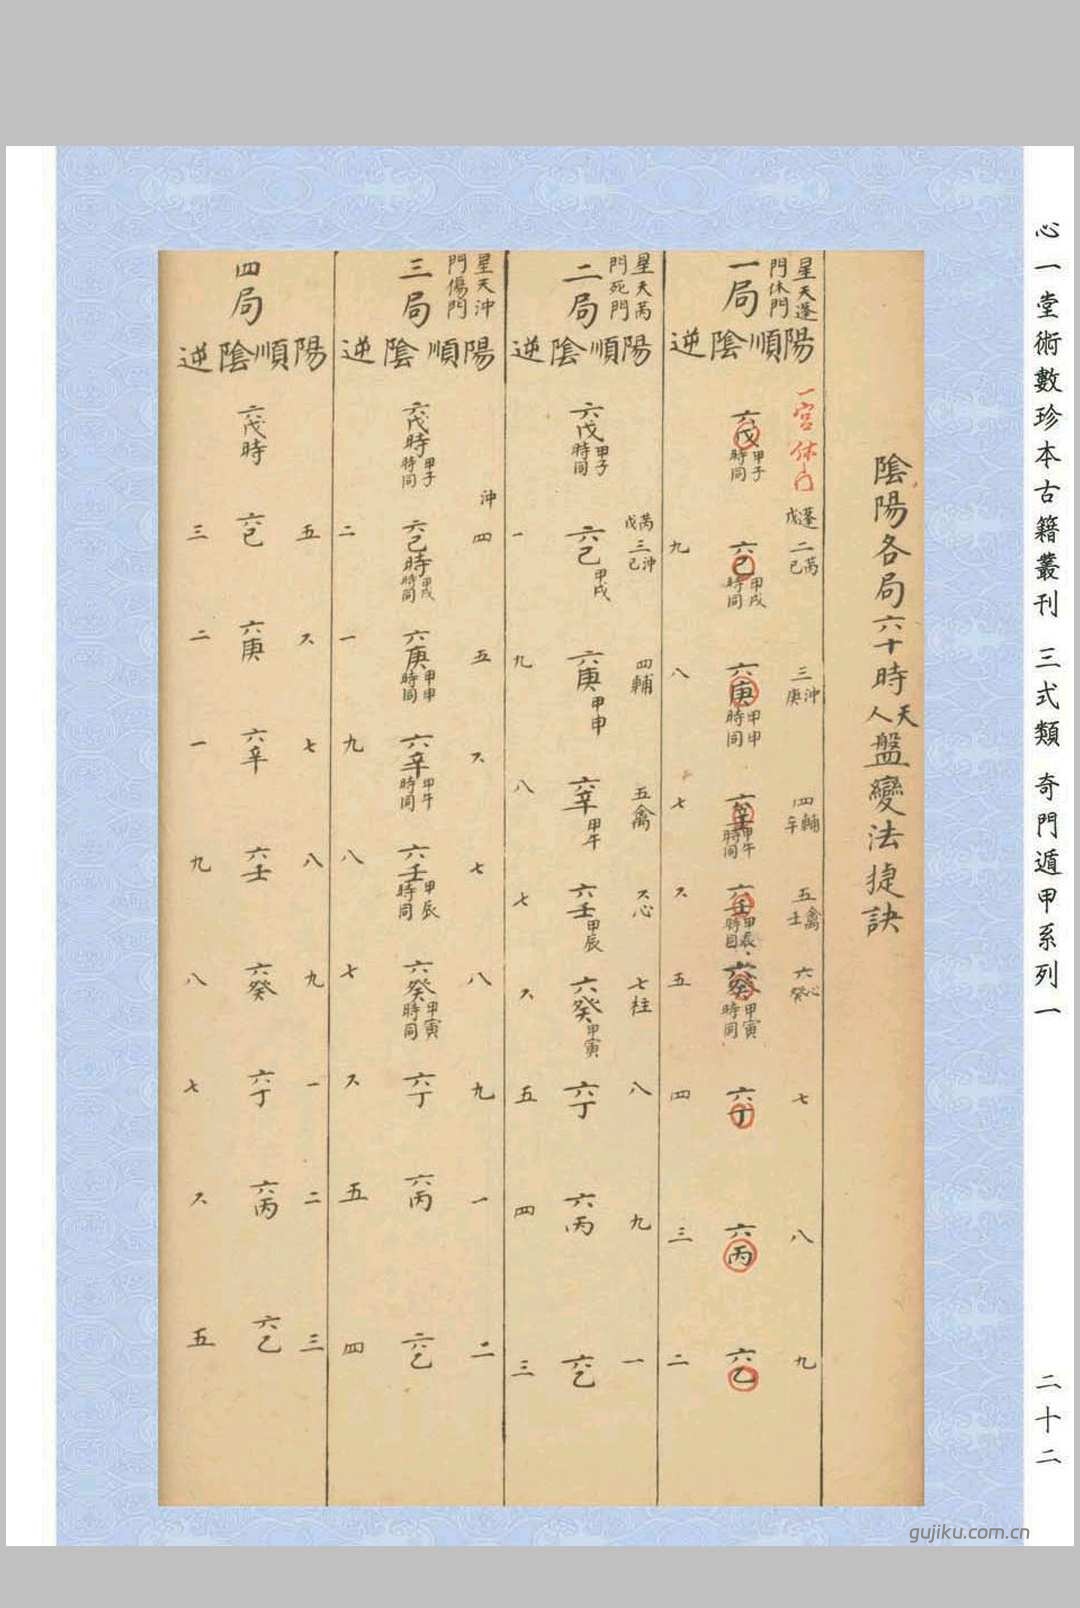 心一堂術數珍本古籍叢刊 三式類 奇門遁甲系列一
二十二
陰陽各局六十時天人盤變法捷訣
星天蓬
門休門
一局
陽順陰逆
一宮休門
蓬戊
二芮己
三沖庚
四輔辛
五禽壬
六心癸
七
八
九
六戊甲子時同
六己甲戌時同
六庚甲申時同
六辛甲午時同
六壬甲辰時同
六癸甲寅時同
六丁
六丙
六乙
九
八
七
六
五
四
三
二
星天芮
門死門
二局
陽順陰逆
芮戊
三沖己
四輔
五禽
六心
七柱
八
九
一
六戊甲子時同
六己甲戌
六庚甲申
六辛甲午
六壬甲辰
六癸甲寅
六丁
六丙
六乙
一
九
八
七
六
五
四
三
星天沖
門傷門
三局
陽順陰逆
沖
四
五
六
七
八
九
一
二
六戊時甲子時同
六己時甲戌時同
六庚甲申時同
六辛甲午時同
六壬甲辰時同
六癸甲寅時同
六丁
六丙
六乙
二
一
九
八
七
六
五
四
四局
陽順陰逆
五
六
七
八
九
一
二
三
六戊時
六己
六庚
六辛
六壬
六癸
六丁
六丙
六乙
三
二
一
九
八
七
六
五
gujiku.com.cn